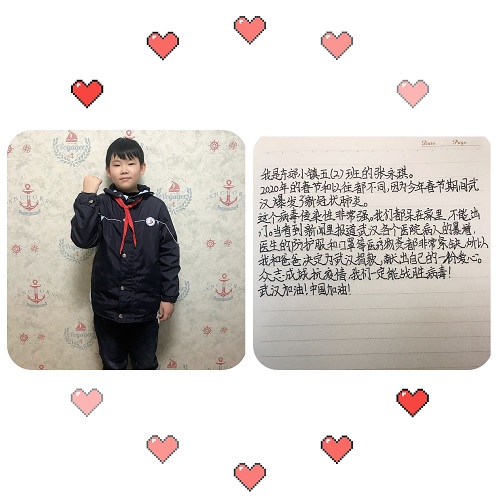 Voyager
Date Page
我是东郊小镇五(2)班的张永琪。
2020年的春节和以往都不同,因为今年春节期间武
汉爆发了新冠状肺炎。
这个病毒传染性非常强。我们都呆在家里,不能出
门。当看到新闻里报道武汉各个医院病人的暴增,
医生的防护服和口罩等医疗物资都非常紧缺,所以
我和爸爸决定为武汉捐款,献出自己的一份爱心。
众志成城抗疫情,我们一定能战胜病毒!
武汉加油!中国加油!